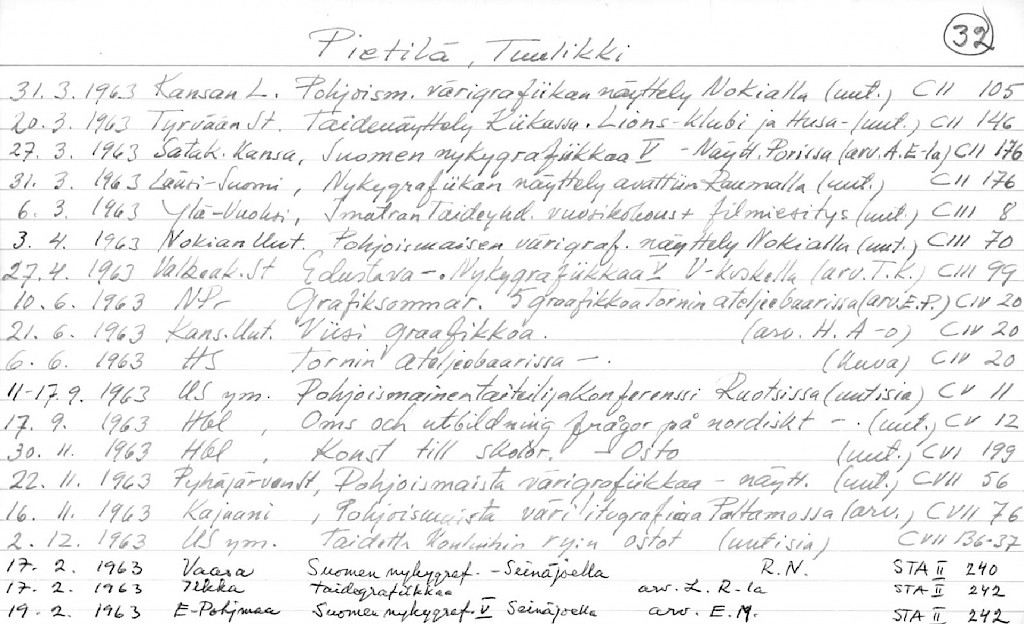 32
Pietilä, Tuulikki
31. 3. 1963 Kansan L. Pohjoism. värigrafiikan näyttely Nokialla (uut.) CII 105
20. 3. 1963 Tyrvään St. Taidenäyttely Kiikassa. Lions-klubi ja Husa- (uut.) CII 146
27. 3. 1963 Satak. Kansa, Suomen nykygrafiikkaa V - Näytt. Porissa (arv. A. E-la) CII 176
31. 3. 1963 Länsi-Suomi, Nykygrafiikan näyttely avattiin Raumalla (uut.) CII 176
6. 3. 1963 Ylä-Vuoksi, Imatran Taideyhd. vuosikokous + filmiesitys (uut.) CIII 8
3. 4. 1963 Nokian Uut. Pohjoismaisen värigraf. näyttely Nokialla (uut.) CIII 70
27. 4. 1963 Valkeak. St Edustava -. Nykygrafiikkaa V V-koskella (arv. T. K.) CIII 99
10. 6. 1963 NPr Grafiksommar. 5 graafikkoa Tornin ateljeebaarissa (arv. E. P.) CIV 20
21. 6. 1963 Kans. Uut. Viisi graafikkoa. (arv. H. A-o) CIV 20
6. 6. 1963 HS Tornin ateljeebaarissa -. (kuva) CIV 20
11-17. 9. 1963 US ym. Pohjoismainen taiteilijakonferenssi Ruotsissa (uutisia) CV 11
17. 9. 1963 Hbl, Oms och utbildning frågor på nordiskt -. (uut.) CV 12
30. 11. 1963 Hbl, Konst till skolor. - Osto (uut.) CVI 199
22. 11. 1963 Pyhäjärven St, Pohjoismaista värigrafiikkaa - näytt. (uut.) CVII 56
16. 11. 1963 Kajaani, Pohjoismaista värilitografiaa Paltamossa (arv.) CVII 76
2. 12. 1963 US ym. Taidetta Kouluihin ry:n ostot (uutisia) CVII 136-37
17. 2. 1963 Vaasa Suomen nykygraf. - Seinäjoella R. N. STA II 240
17. 2. 1963 Ilkka Taidegrafiikkaa arv. L. R-la STA II 242
19. 2. 1963 E-Pohjmaa Suomen nykygraf. V Seinäjoella arv. E. M. STA II 242